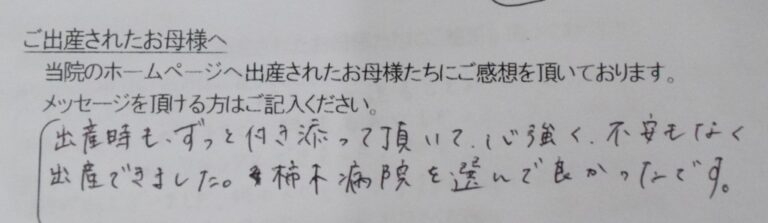 ご出産されたお母様へ
当院のホームページへ出産されたお母様たちにご感想を頂いております。
メッセージを頂ける方はご記入ください。
出産時も、ずっと付き添って頂いて、心強く、不安もなく
出産できました。柿木病院を選んで良かったなです。